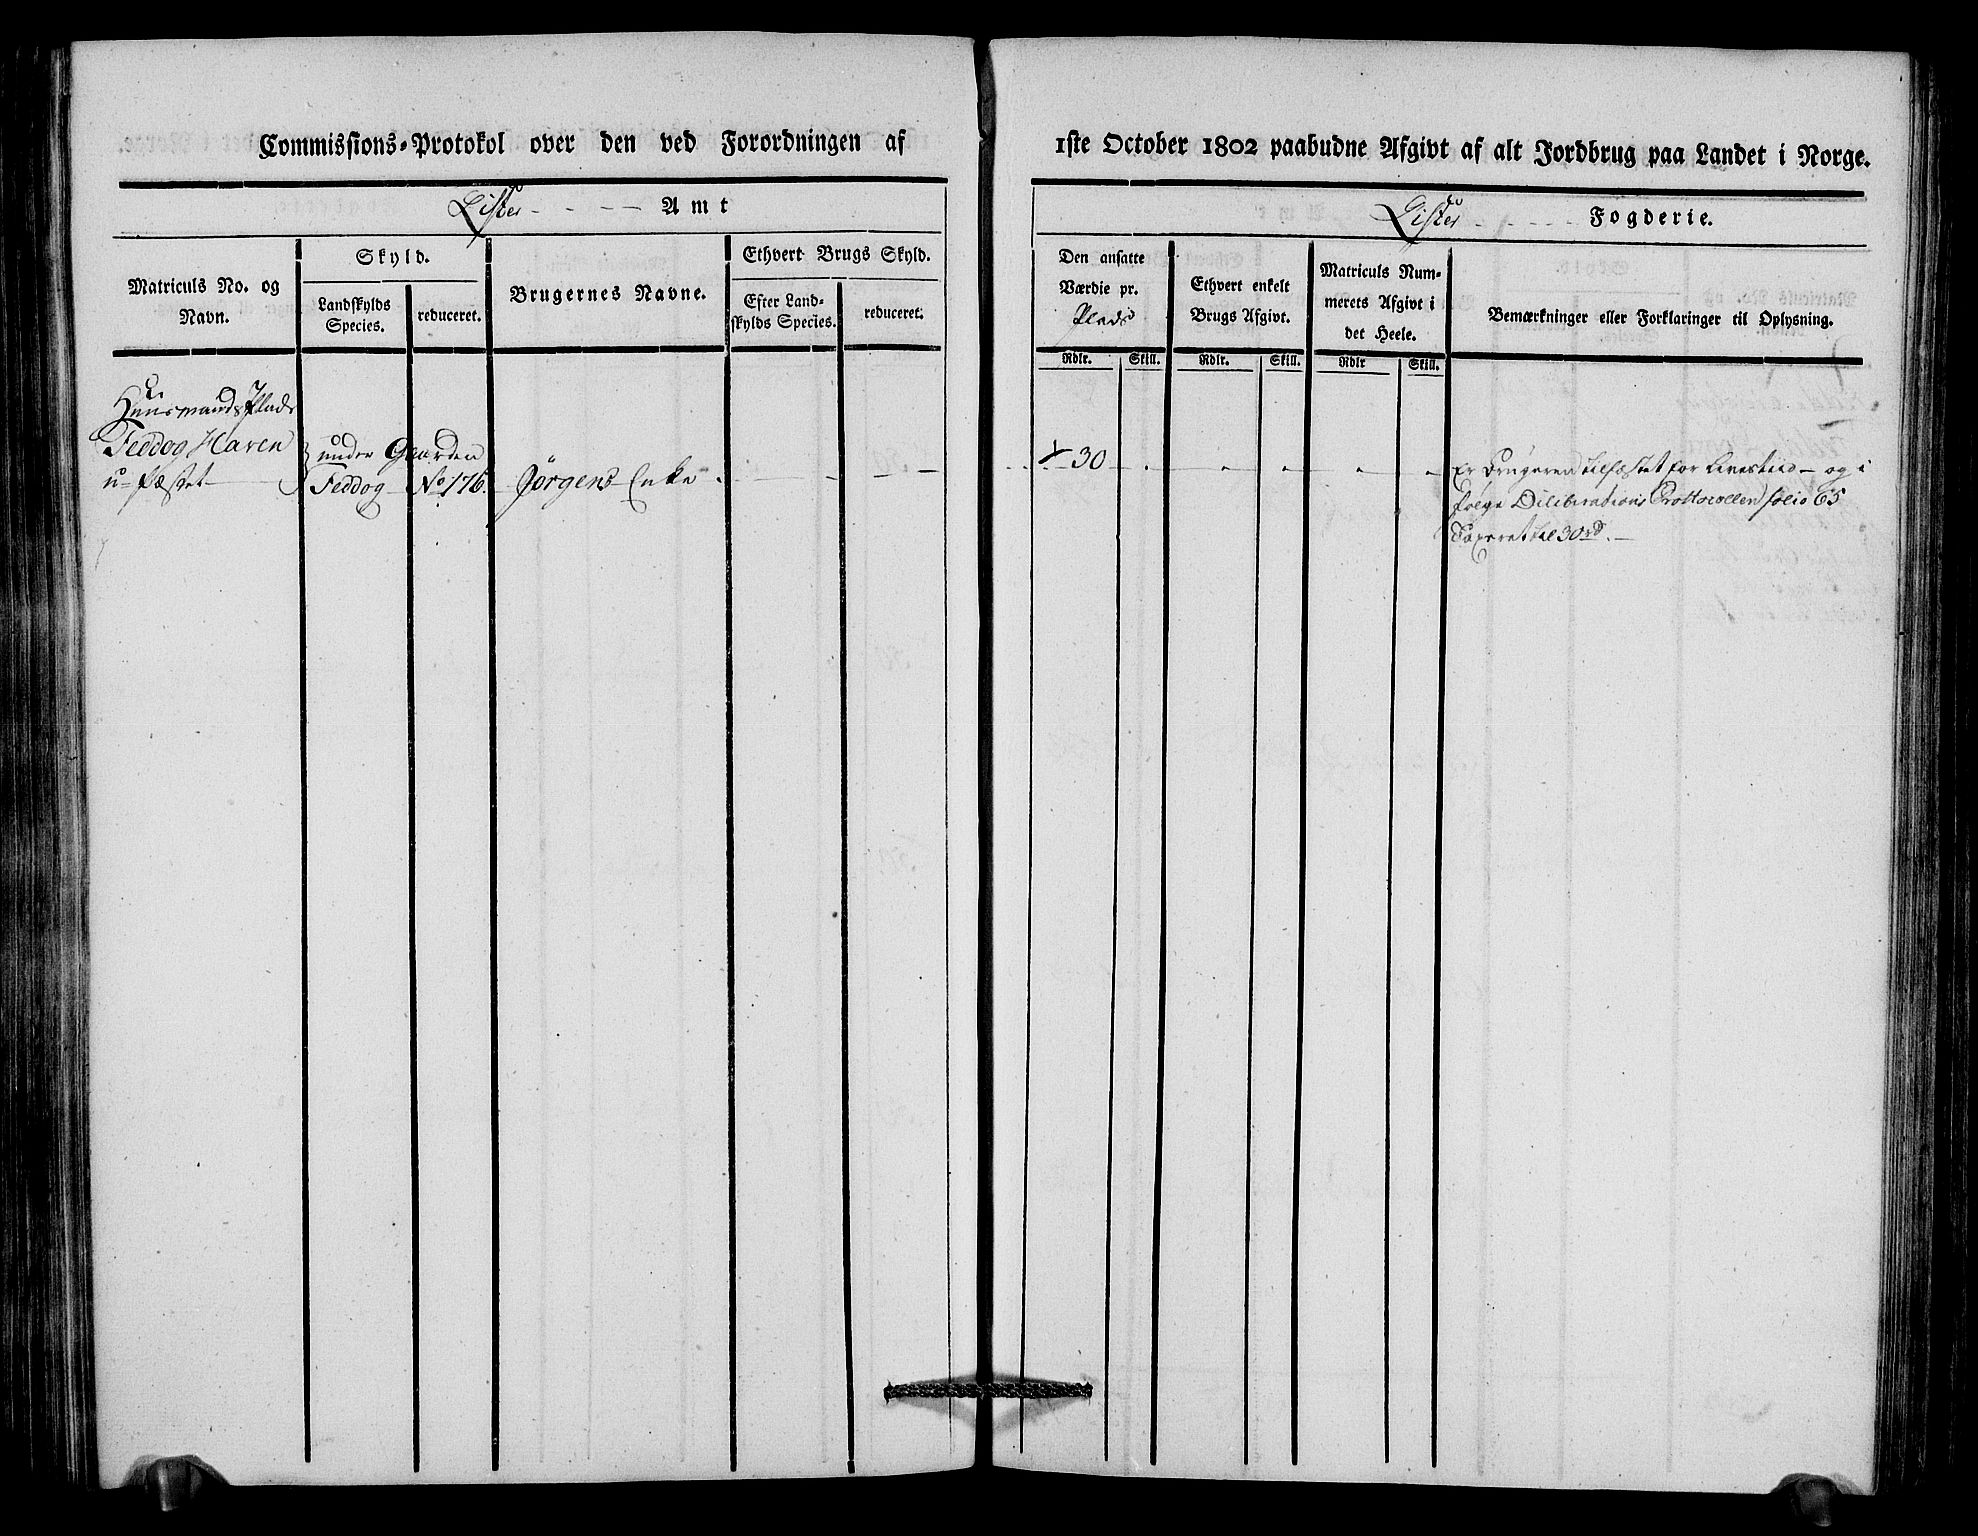 Commissions-Protokol over den ved Forordningen af
1ste October 1802 paabudne Afgivt af alt Jordbrug paa Landet i Norge.
Lister Amt
Lister Fogderie.
Matriculs No. og
Navn.
Skyld.
Landskylds
Species.
reduceret.
Brugernes Navne.
Ethvert Brugs Skyld.
Efter Land-
skylds Species.
reduceret.
Den ansatte
Værdie pr.
Plads
Rdlr. Skill.
Ethvert enkelt
Brugs Afgivt.
Rdlr. Skill.
Matriculs Num-
merets Afgivt i
det Heele.
Rdlr Skill.
Bemærkninger eller Forklaringer til Oplysning.
Huusmands Plads
Feddog Haren
u-fæstet
under Gaarden
Feddog No 176.
Jørgens Enke
30
Er Brugeren tilfæstet for Livestiid - og i
følge Diliberations Prottocollen folio 65
Taxeret til 30 rd.